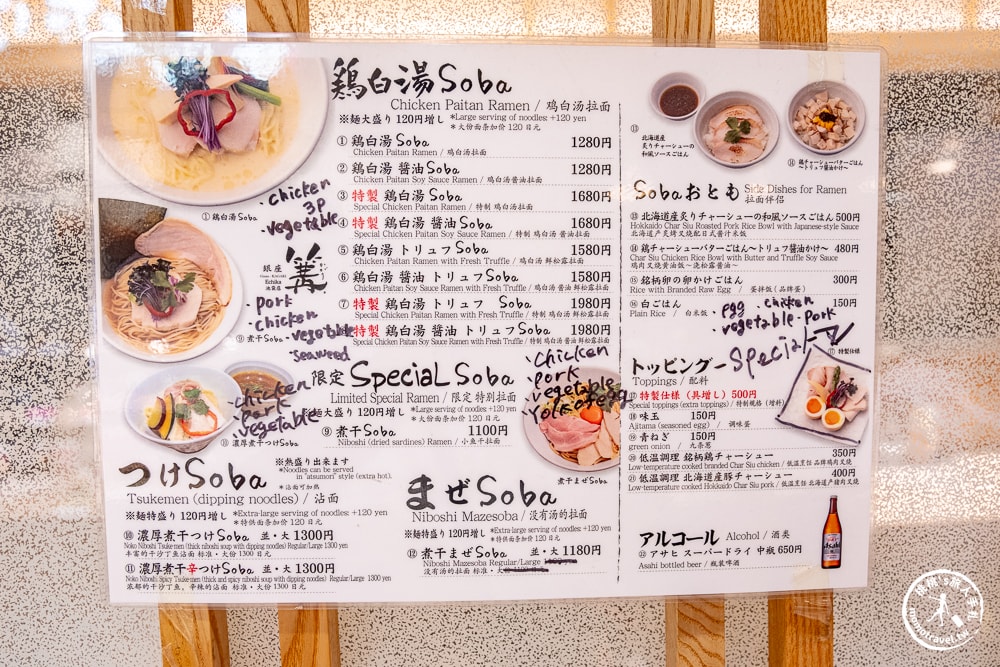 鶏白湯Soba
Chicken Paitan Ramen / 鸡白汤拉面
※麺大盛り 120円増し
*Large serving of noodles +120 yen
*大份面条加价 120 日元
① 鶏白湯 Soba 1280円
Chicken Paitan Ramen / 鸡白汤拉面
② 鶏白湯 醤油 Soba 1280円
Chicken Paitan Soy Sauce Ramen / 鸡白汤酱油拉面
③ 特製 鶏白湯 Soba 1680円
Special Chicken Paitan Ramen / 特制 鸡白汤拉面
④ 特製 鶏白湯 醤油 Soba 1680円
Special Chicken Paitan Soy Sauce Ramen / 特制 鸡白汤 酱油拉面
⑤ 鶏白湯 トリュフ Soba 1580円
Chicken Paitan Ramen with Fresh Truffle / 鸡白汤面 鲜松露拉面
⑥ 鶏白湯 醤油 トリュフ Soba 1580円
Chicken Paitan Soy Sauce Ramen with Fresh Truffle / 鸡白汤面 鲜松露拉面
⑦ 特製 鶏白湯 トリュフ Soba 1980円
Special Chicken Paitan Ramen with Fresh Truffle / 特制 鸡白汤面 鲜松露拉面
特製 鶏白湯 醤油 トリュフ Soba 1980円
Special Chicken Paitan Soy Sauce Ramen with Fresh Truffle / 特制 鸡白汤面 鲜松露拉面
① 鶏白湯 Soba
・chicken
3p
・vegetable
銀座
篝
Echika
池袋店
・pork
・chicken
・vegetable
・seaweed
⑨ 煮干 Soba
限定 SpeciaL Soba
Limited Special Ramen / 限定 特别拉面
麺大盛り 120円増し
*Large serving of noodles +120 yen
*大份面条加价 120 日元
⑨ 煮干 Soba 1100円
Niboshi (dried sardines) Ramen / 小鱼干拉面
・chicken
・pork
vegetable
yolk of egg
煮干まぜSoba
・chicken
・pork
・vegetable
⑩ 濃厚煮干つけSoba
つけSoba
※熱盛り出来ます
*Noodles can be served
in 'atsumori' style (extra hot).
*沾面可加热
Tsukemen (dipping noodles) / 沾面
※麺特盛り 120円増し
*Extra-large serving of noodles: +120 yen
*特供面条加价 120 日元
⑩ 濃厚煮干つけSoba 並・大 1300円
Noko Niboshi Tsuke-men (thick niboshi soup with dipping noodles) Regular/Large 1300 yen
丰富的干沙丁鱼沾面 标准・大份 1300 日元
⑪ 濃厚煮干辛つけSoba 並・大 1300円
Noko Niboshi Spicy Tsuke-men (thick and spicy niboshi soup with dipping noodles) Regular/Large 1300 yen
浓郁的干沙丁鱼、辛辣的沾面 标准・大份 1300 日元
まぜSoba
Niboshi Mazesoba / 没有汤的拉面
※麺特盛り 120円増し
*Extra-large serving of noodles: +120 yen
*特供面条加价 120 日元
⑫ 煮干まぜSoba 並・大 1180円
Niboshi Mazesoba Regular/Large
没有汤的拉面 标准・大
⑬
北海道産
炙りチャーシューの
和風ソースごはん
⑭ 鶏チャーシューバターごはん
～トリュフ醤油かけ～
Sobaおとも
Side Dishes for Ramen
拉面伴侣
⑬ 北海道産炙りチャーシューの和風ソースごはん 500円
Hokkaido Char Siu Roasted Pork Rice Bowl with Japanese-style Sauce
北海道产炙烤叉烧配日式酱汁米饭
⑭ 鶏チャーシューバターごはん～トリュフ醤油かけ～ 480円
Char Siu Chicken Rice Bowl with Butter and Truffle Soy Sauce
鸡肉叉烧黄油饭～浇松露酱油～
⑮ 銘柄卵の卵かけごはん 300円
Rice with Branded Raw Egg / 蛋拌饭（品牌蛋）
⑯ 白ごはん 150円
Plain Rice / 白米饭
・egg ・chicken
・vegetable ・pork
Special
⑰ 特製仕様
トッピング
Toppings / 配料
⑰ 特製仕様（具増し）500円
Special toppings (extra toppings) / 特制规格（增料）
⑱ 味玉 150円
Ajitama (seasoned egg) / 调味蛋
⑲ 青ねぎ 150円
green onion / 九条葱
⑳ 低温調理 銘柄鶏チャーシュー 350円
Low-temperature cooked branded Char Siu chicken / 低温烹饪 品牌鸡肉叉烧
㉑ 低温調理 北海道産豚チャーシュー 400円
Low-temperature cooked Hokkaido Char Siu pork / 低温烹饪 北海道产猪肉叉烧
アルコール Alcohol / 酒类
㉒ アサヒ スーパードライ 中瓶 650円
Asahi bottled beer / 瓶装啤酒
Asahi